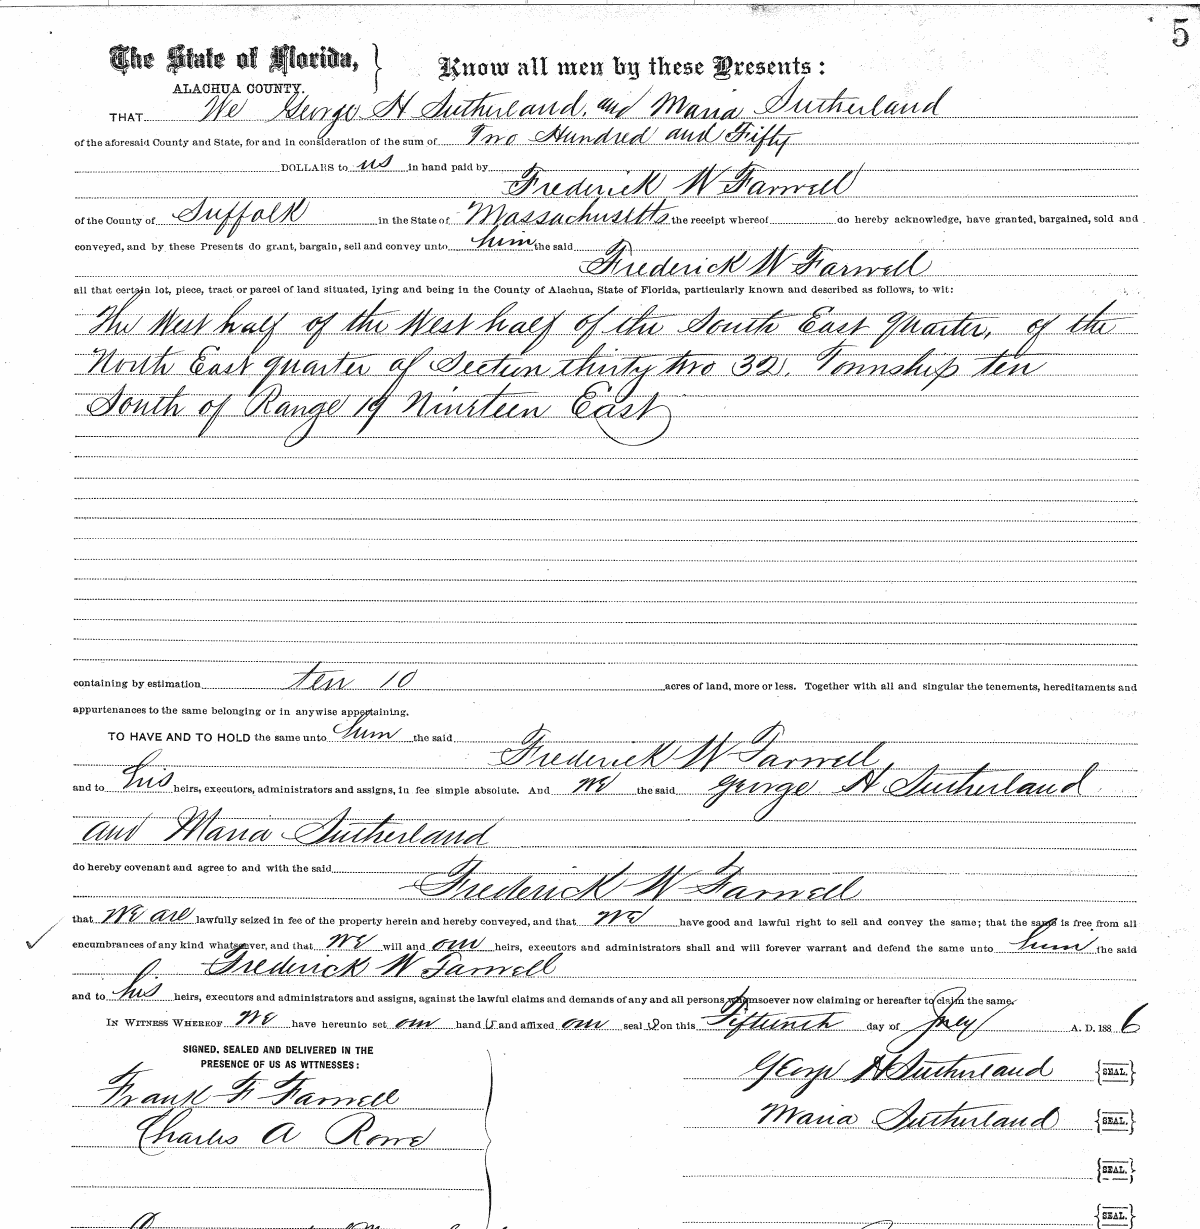 5
The State of Florida, } Know all men by these Presents:
ALACHUA COUNTY.
THAT We George H Sutherland, and Maria Sutherland
of the aforesaid County and State, for and in consideration of the sum of Two Hundred and Fifty
DOLLARS to us in hand paid by
Frederick W Farwell
of the County of Suffolk in the State of Massachusetts the receipt whereof do hereby acknowledge, have granted, bargained, sold and
conveyed, and by these Presents do grant, bargain, sell and convey unto him the said
Frederick W Farwell
all that certain lot, piece, tract or parcel of land situated, lying and being in the County of Alachua, State of Florida, particularly known and described as follows, to wit:
The West half of the West half of the South East quarter, of the
North East quarter of Section thirty two 32. Township ten
South of Range 19 Nineteen East
containing by estimation ten 10 acres of land, more or less. Together with all and singular the tenements, hereditaments and
appurtenances to the same belonging or in anywise appertaining.
TO HAVE AND TO HOLD the same unto him the said
Frederick W Farwell,
and to his heirs, executors, administrators and assigns, in fee simple absolute. And we the said George H Sutherland
and Maria Sutherland
do hereby covenant and agree to and with the said
Frederick W Farwell
that we are lawfully seized in fee of the property herein and hereby conveyed, and that we have good and lawful right to sell and convey the same; that the same is free from all
encumbrances of any kind whatsoever, and that we will and our heirs, executors and administrators shall and will forever warrant and defend the same unto him the said
Frederick W Farwell
and to his heirs, executors and administrators and assigns, against the lawful claims and demands of any and all persons whomsoever now claiming or hereafter to claim the same.
IN WITNESS WHEREOF we have hereunto set our hands and affixed our seals on this Fifteenth day of July A. D. 1886
SIGNED, SEALED AND DELIVERED IN THE
PRESENCE OF US AS WITNESSES:
George H Sutherland {SEAL.}
Frank F Farwell
Maria Sutherland {SEAL.}
Charles A Rowe
{SEAL.}
{SEAL.}